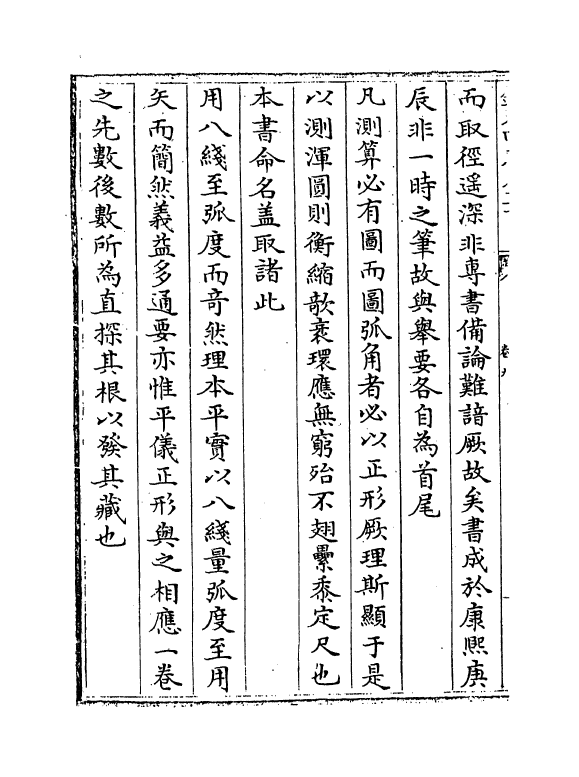 而取徑遥深非專書備論難諳厥故矣書成於康熙庚
辰非一時之筆故與舉要各自為首尾
凡測算必有圖而圖弧角者必以正形厥理斯顯于是
以測渾圖則衡縮欹衺環應無窮殆不翅纍黍定尺也
本書命名盖取諸此
用八綫至弧度而竒然理本平實以八綫量弧度至用
矢而簡然義益多通要亦惟平儀正形與之相應一卷
之先數後數所為直探其根以發其藏也